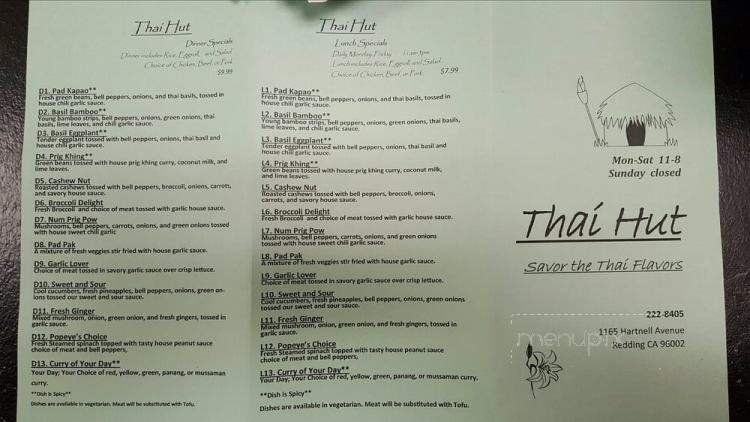 Thai Hut
Dinner Specials
Dinner includes Rice, Eggroll, and Salad
Choice of Chicken, Beef, or Pork
$9.99
D1. Pad Kapao**
Fresh green beans, bell peppers, onions, and thai basils, tossed in
house chili garlic sauce.
D2. Basil Bamboo**
Young bamboo strips, bell peppers, onions, green onions, thai
basils, lime leaves, and chili garlic sauce.
D3. Basil Eggplant**
Tender eggplant tossed with bell peppers, onions, thai basil and
house chili garlic sauce.
D4. Prig Khing**
Green beans tossed with house prig khing curry, coconut milk,
and lime leaves.
D5. Cashew Nut
Roasted cashews tossed with bell peppers, broccoli, onions, carrots,
and savory house sauce.
D6. Broccoli Delight
Fresh Broccoli and choice of meat tossed with garlic house sauce.
D7. Num Prig Pow
Mushrooms, bell peppers, carrots, onions, and green onions tossed
with house sweet chili garlic
D8. Pad Pak
A mixture of fresh veggies stir fried with house garlic sauce.
D9. Garlic Lover
Choice of meat tossed in savory garlic sauce over crisp lettuce.
D10. Sweet and Sour
Cool cucumbers, fresh pineapples, bell peppers, onions, green on-
ions tossed our sweet and sour sauce.
D11. Fresh Ginger
Mixed mushroom, onion, green onion, and fresh gingers, tossed in
garlic sauce.
D12. Popeye's Choice
Fresh Steamed spinach topped with tasty house peanut sauce
choice of meat and bell peppers,
D13. Curry of Your Day**
Your Day; Your Choice of red, yellow, green, panang, or mussaman
curry.
**Dish is Spicy**
Dishes are available in vegetarian. Meat will be substituted with Tofu.
Thai Hut
Lunch Specials
Daily Monday-Friday 11am-3pm
Lunch includes Rice, Eggroll, and Salad
Choice of Chicken, Beef, or Pork $7.99
L1. Pad Kapao**
Fresh green beans, bell peppers, onions, and thai basils, tossed in
house chili garlic sauce.
L2. Basil Bamboo**
Young bamboo strips, bell peppers, onions, green onions, thai basils,
lime leaves, and chili garlic sauce.
L3. Basil Eggplant**
Tender eggplant tossed with bell peppers, onions, thai basil and
house chili garlic sauce.
L4. Prig Khing**
Green beans tossed with house prig khing curry, coconut milk,
and lime leaves.
L5. Cashew Nut
Roasted cashews tossed with bell peppers, broccoli, onions,
carrots, and savory house sauce.
L6. Broccoli Delight
Fresh Broccoli and choice of meat tossed with garlic house sauce.
L7. Num Prig Pow
Mushrooms, bell peppers, carrots, onions, and green onions
tossed with house sweet chili garlic sauce.
L8. Pad Pak
A mixture of fresh veggies stir fried with house garlic sauce.
L9. Garlic Lover
Choice of meat tossed in savory garlic sauce over crisp lettuce.
L10. Sweet and Sour
Cool cucumbers, fresh pineapples, bell peppers, onions, green onions
tossed our sweet and sour sauce.
L11. Fresh Ginger
Mixed mushroom, onion, green onion, and fresh gingers, tossed in
garlic sauce.
L12. Popeye's Choice
Fresh Steamed spinach topped with tasty house peanut sauce
choice of meat and bell peppers,
L13. Curry of Your Day**
Your Day; Your Choice of red, yellow, green, panang, or mussaman curry.
**Dish is Spicy**
Dishes are available in vegetarian. Meat will be substituted with Tofu.
Mon-Sat 11-8
Sunday closed
Thai Hut
Savor the Thai Flavors
222-8405
1165 Hartnell Avenue
Redding CA 96002
menupix